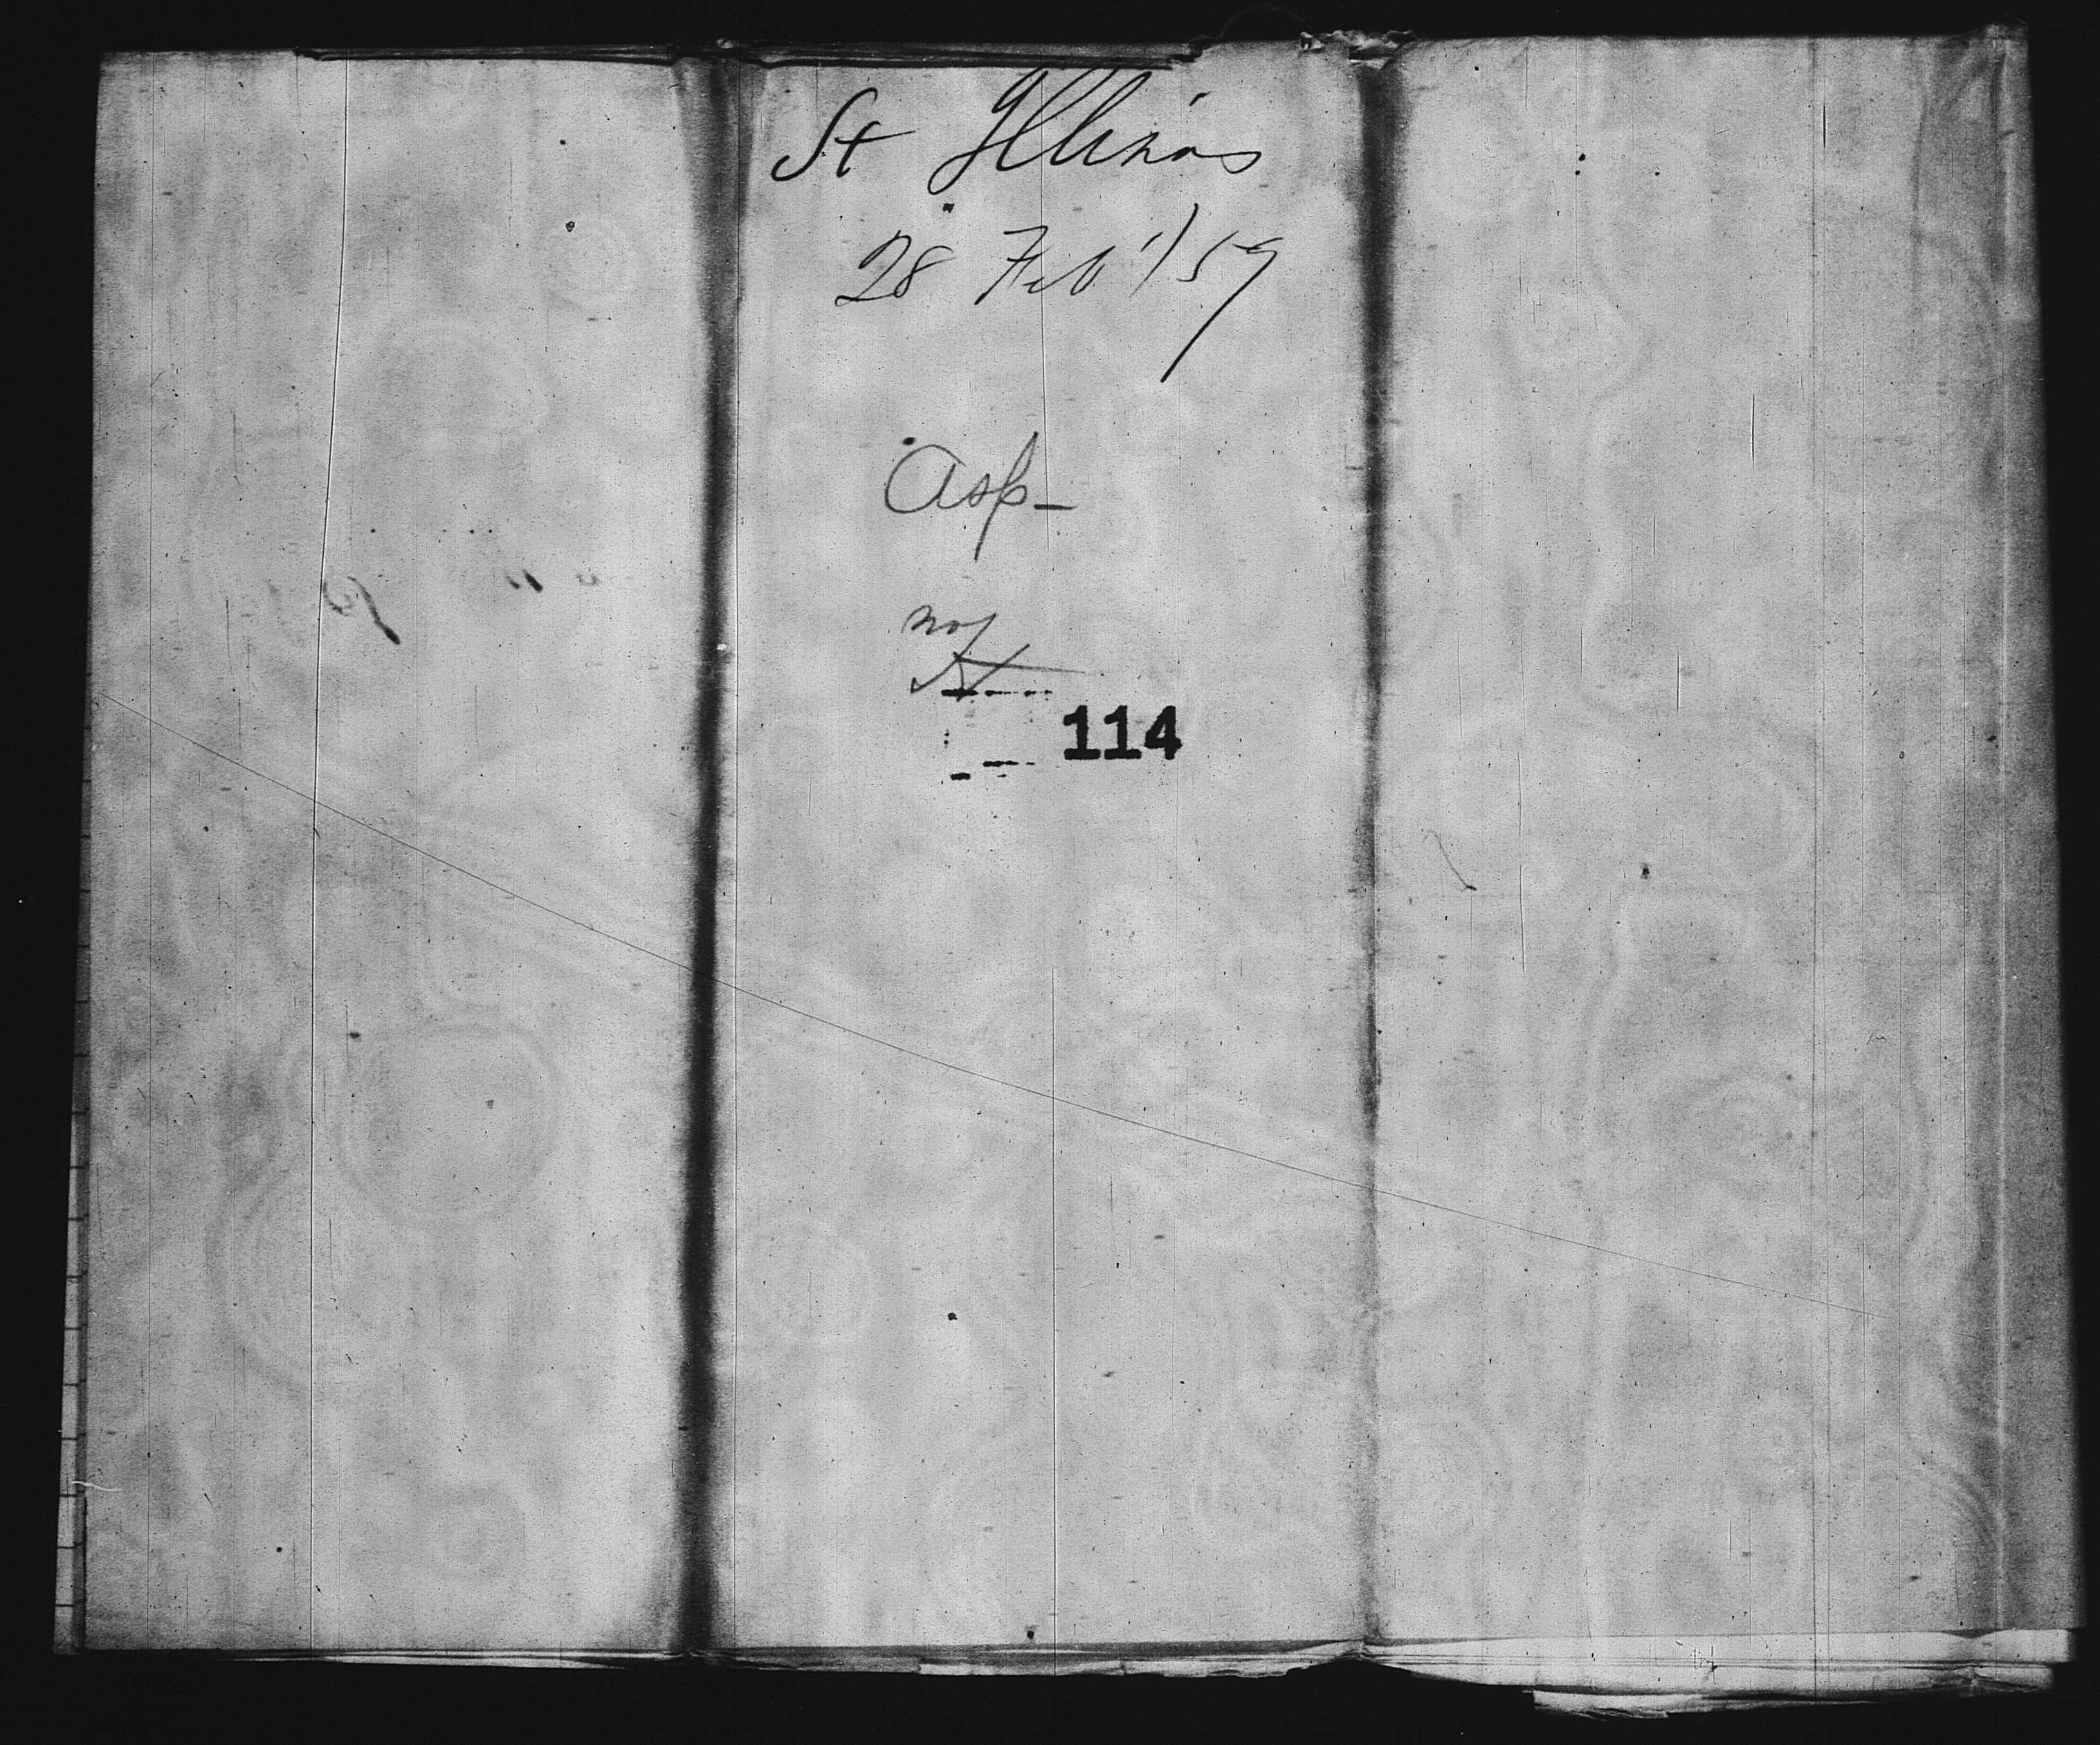 St Illinois
28 Feb'/59
Asp-
114